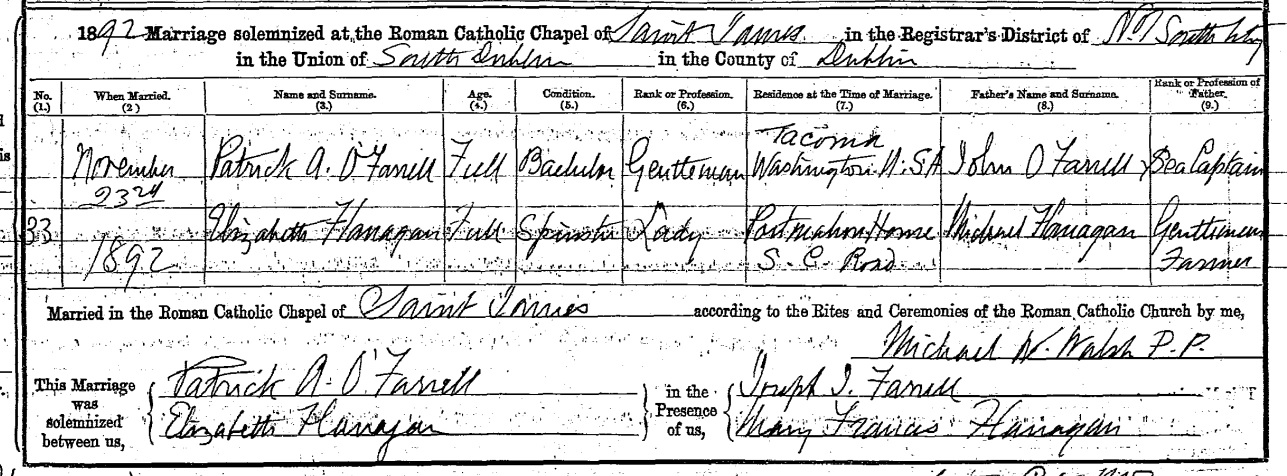 1892 Marriage solemnized at the Roman Catholic Chapel of Saint James in the Registrar's District of No 1 South City
in the Union of South Dublin in the County of Dublin
No. (1.) When Married. (2) Name and Surname. (3.) Age. (4.) Condition. (5.) Rank or Profession. (6.) Residence at the Time of Marriage. (7.) Father's Name and Surname. (8.) Rank or Profession of Father. (9.)
November 23rd Patrick A. O'Farrell Full Bachelor Gentleman Tacoma Washington U.S.A John O Farrell Sea Captain
33 1892 Elizabeth Flanagan Full Spinster Lady Portmahon House S. C. Road Michael Flanagan Gentleman Farmer
Married in the Roman Catholic Chapel of Saint James according to the Rites and Ceremonies of the Roman Catholic Church by me,
Michael Walsh P.P.
This Marriage was solemnized between us, Patrick A. O'Farrell in the Presence of us, Joseph I. Farrell
Elizabeth Flanagan Mary Francis Flanagan